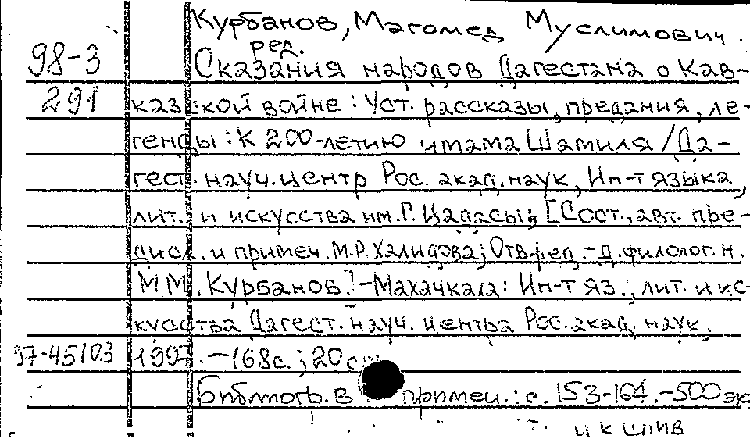 Курбанов, Магомед Муслимович.
ред.
98-3 Сказания народов Дагестана о Кав-
291 казской войне : Уст. рассказы, предания, ле-
генды : К 200-летию имама Шамиля / Да-
гест. науч. центр Рос. акад. наук, Ин-т языка,
лит. и искусства им. Г. Цадасы; [Сост., авт. пре-
дисл. и примеч. М.Р. Халидова; Отв. ред. - д. филолог. н.
М.М. Курбанов]. - Махачкала : Ин-т яз., лит. и ис-
кусства Дагест. науч. центра Рос. акад. наук,
97-45103 1997. - 168 с.; 20 см
Библиогр. в примеч.: с. 153-164. - 500 эк